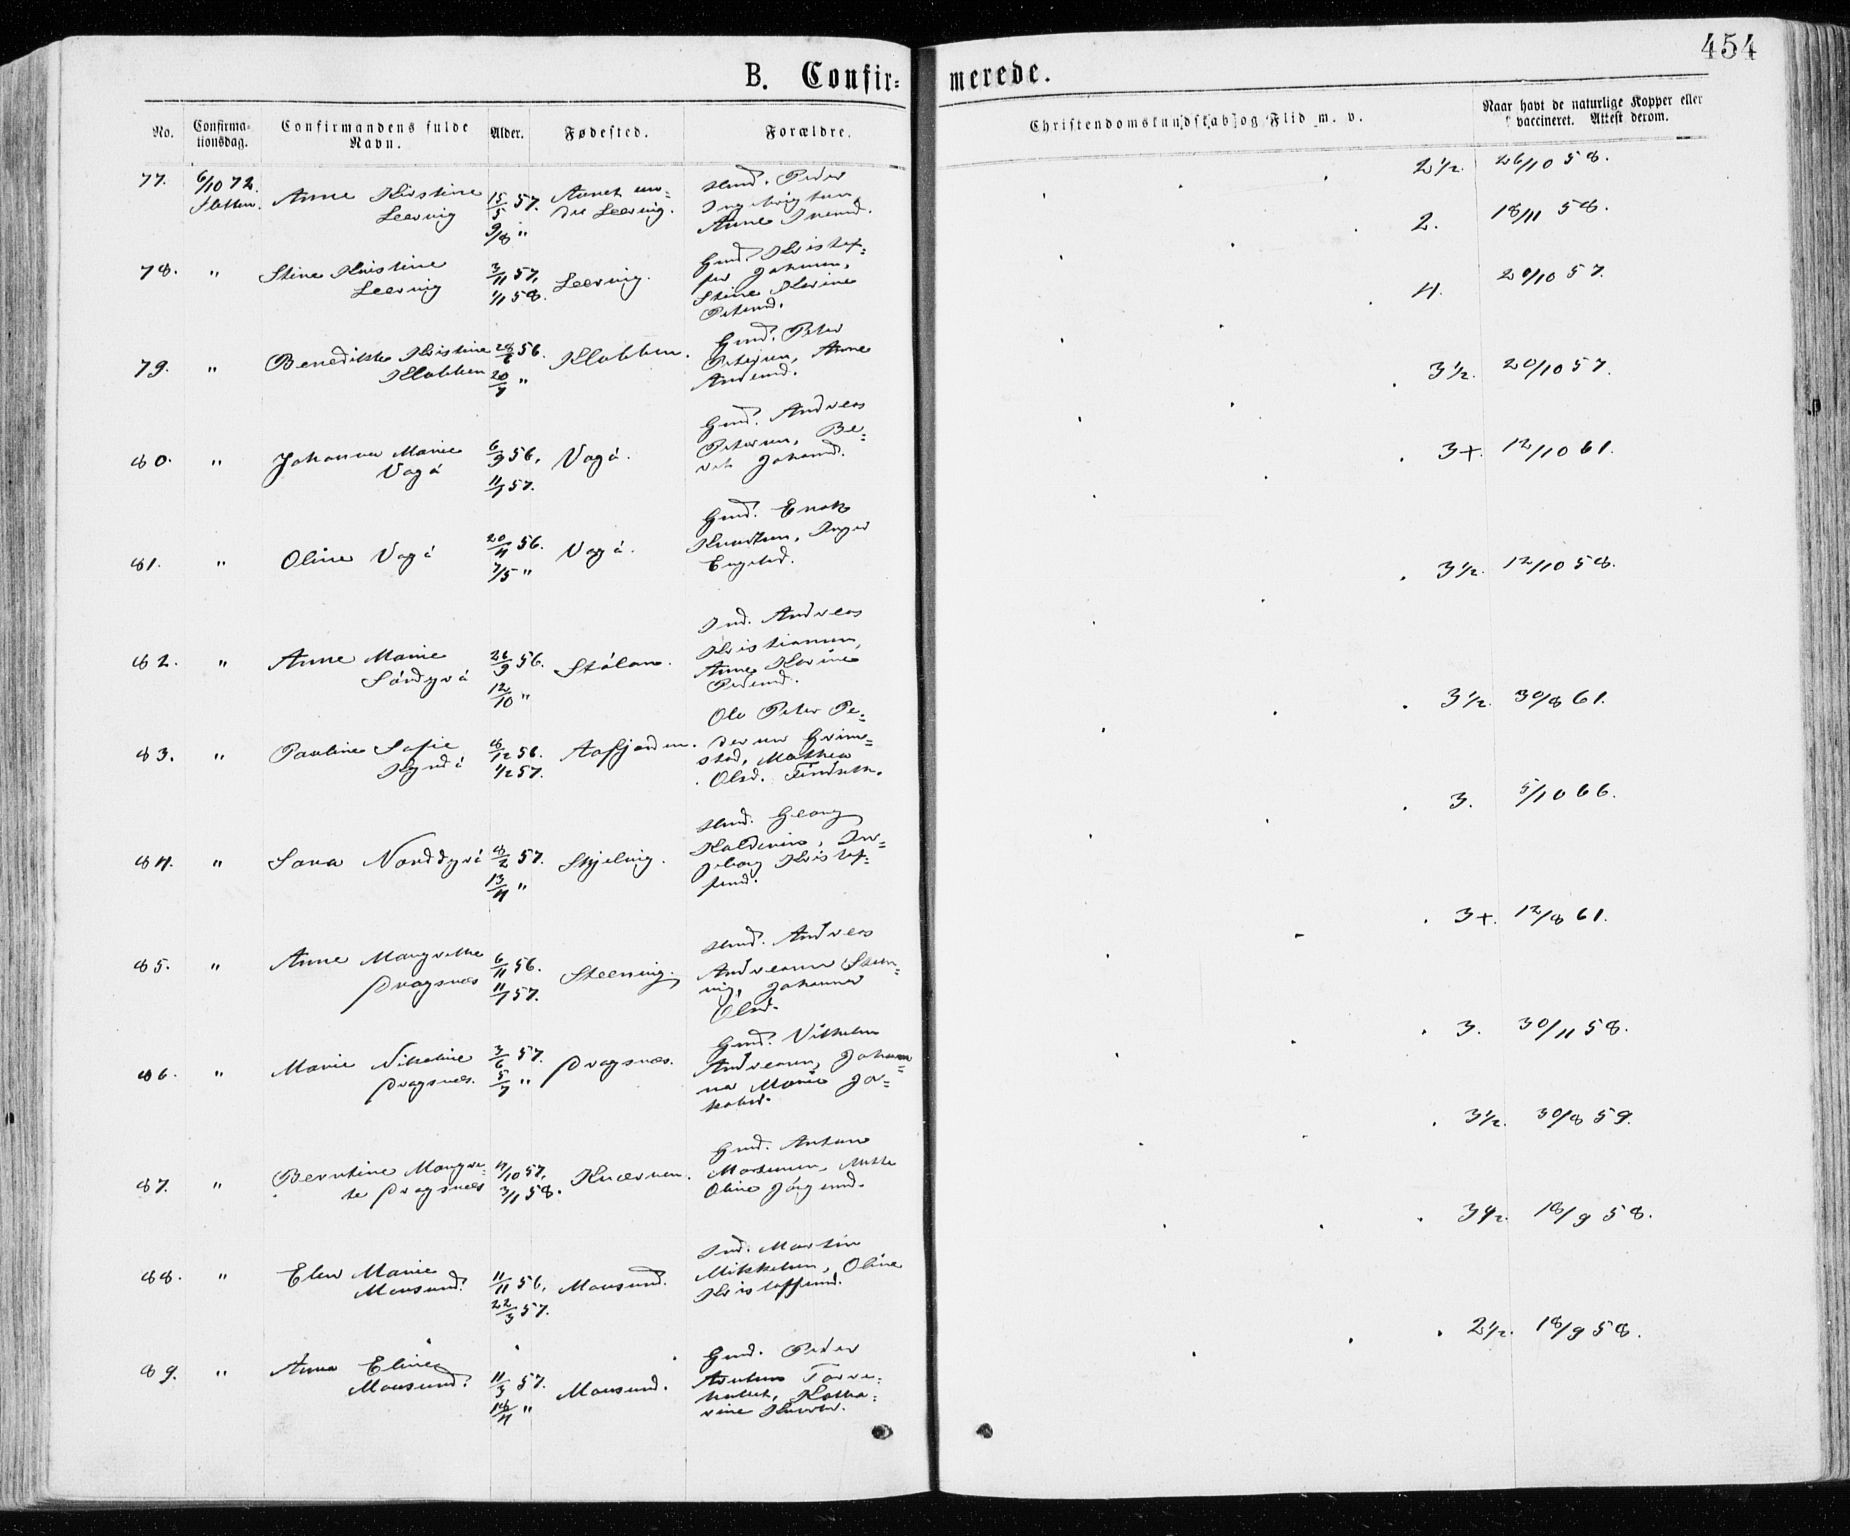 454
B. Confir=
merede.
No. Confirma=tionsdag. Confirmandens fulde Navn. Alder. Fødested. Forældre. Christendomskundskab, og Flid m. v. Naar havt de naturlige Kopper eller vaccineret. Attest derom.
77. 6/10 72.
Anne Kirstine
Leervig
15/5 57.
9/8 "
Leervig.
Peder
Anne
2 1/2. 26/10 58.
78. "
Stine Kristine
Leervig
3/11 57,
1/1 58.
Leervig.
Gmd. Kristof=
fer Johnsen,
Stine Karine
Petersd.
2. 18/11 58.
79. "
Benedikte Kristine
Klakken
28/6 56.
20/7 "
Klakken.
Gmd. Peter
Petersen, Anne
Andersd.
4. 20/10 57.
80. "
Johanna Marie
Vagö
6/9 56,
11/1 57.
Vagö.
Gmd. Andreas
Petersen, Be=
rit Johansd.
3 1/2. 20/10 57.
81. "
Oline Vagö
20/4 56.
7/5 "
Vagö.
Gmd. Enok
Knudsen, Inger
Engelsd.
3+. 12/10 61.
82. "
Anne Marie
Sördyrö
26/9 56.
12/10 "
Stölan.
Ind. Andreas
Kristiansen,
Anne Karine
Pedersd.
3 1/2. 12/10 58.
83. "
Pauline Sofie
8/12 56.
1/2 57.
Aafjorden.
Ole Peter Pe=
dersen Grim=
stad, Mathea
Olsd.
3 1/2. 30/8 61.
84. "
Sara Norddyrö
8/2 57.
13/4 "
Skjelvig.
Hmd. Georg
In=
geborg Kristof=
fersd.
3. 5/10 66.
85. "
Anne Margrethe
Dragsnæs
6/11 56.
11/1 57.
Steenvig.
Hmd. Andreas
Andreasen
Johanna
Olsd.
3+. 12/8 61.
86. "
Marie Nikoline
Dragsnæs.
3/6 57.
5/7 "
Dragsnæs.
Gmd. Vilhelm
Andreasen, Johan=
na Marie Ja=
kobsd.
3. 30/11 58.
87. "
Berntine Margre=
te Dragsnæs
4/10 57,
3/1 58.
Knærven.
Gmd. Anton
Mortensen,
Oline Jörgensd.
3 1/2. 30/8 59.
88. "
Elen Marie
Mausund.
11/11 56,
22/3 57.
Mausund.
Ind. Martin
Mikkelsen, Oline
Kristoffersd.
3 1/2. 18/9 58.
89. "
Anna Eline
Mausund.
11/3 57.
18/4 "
Mausund.
Gmd. Peder
Arntsen Torve=
Katha=
rine
2 1/2. 18/9 58.